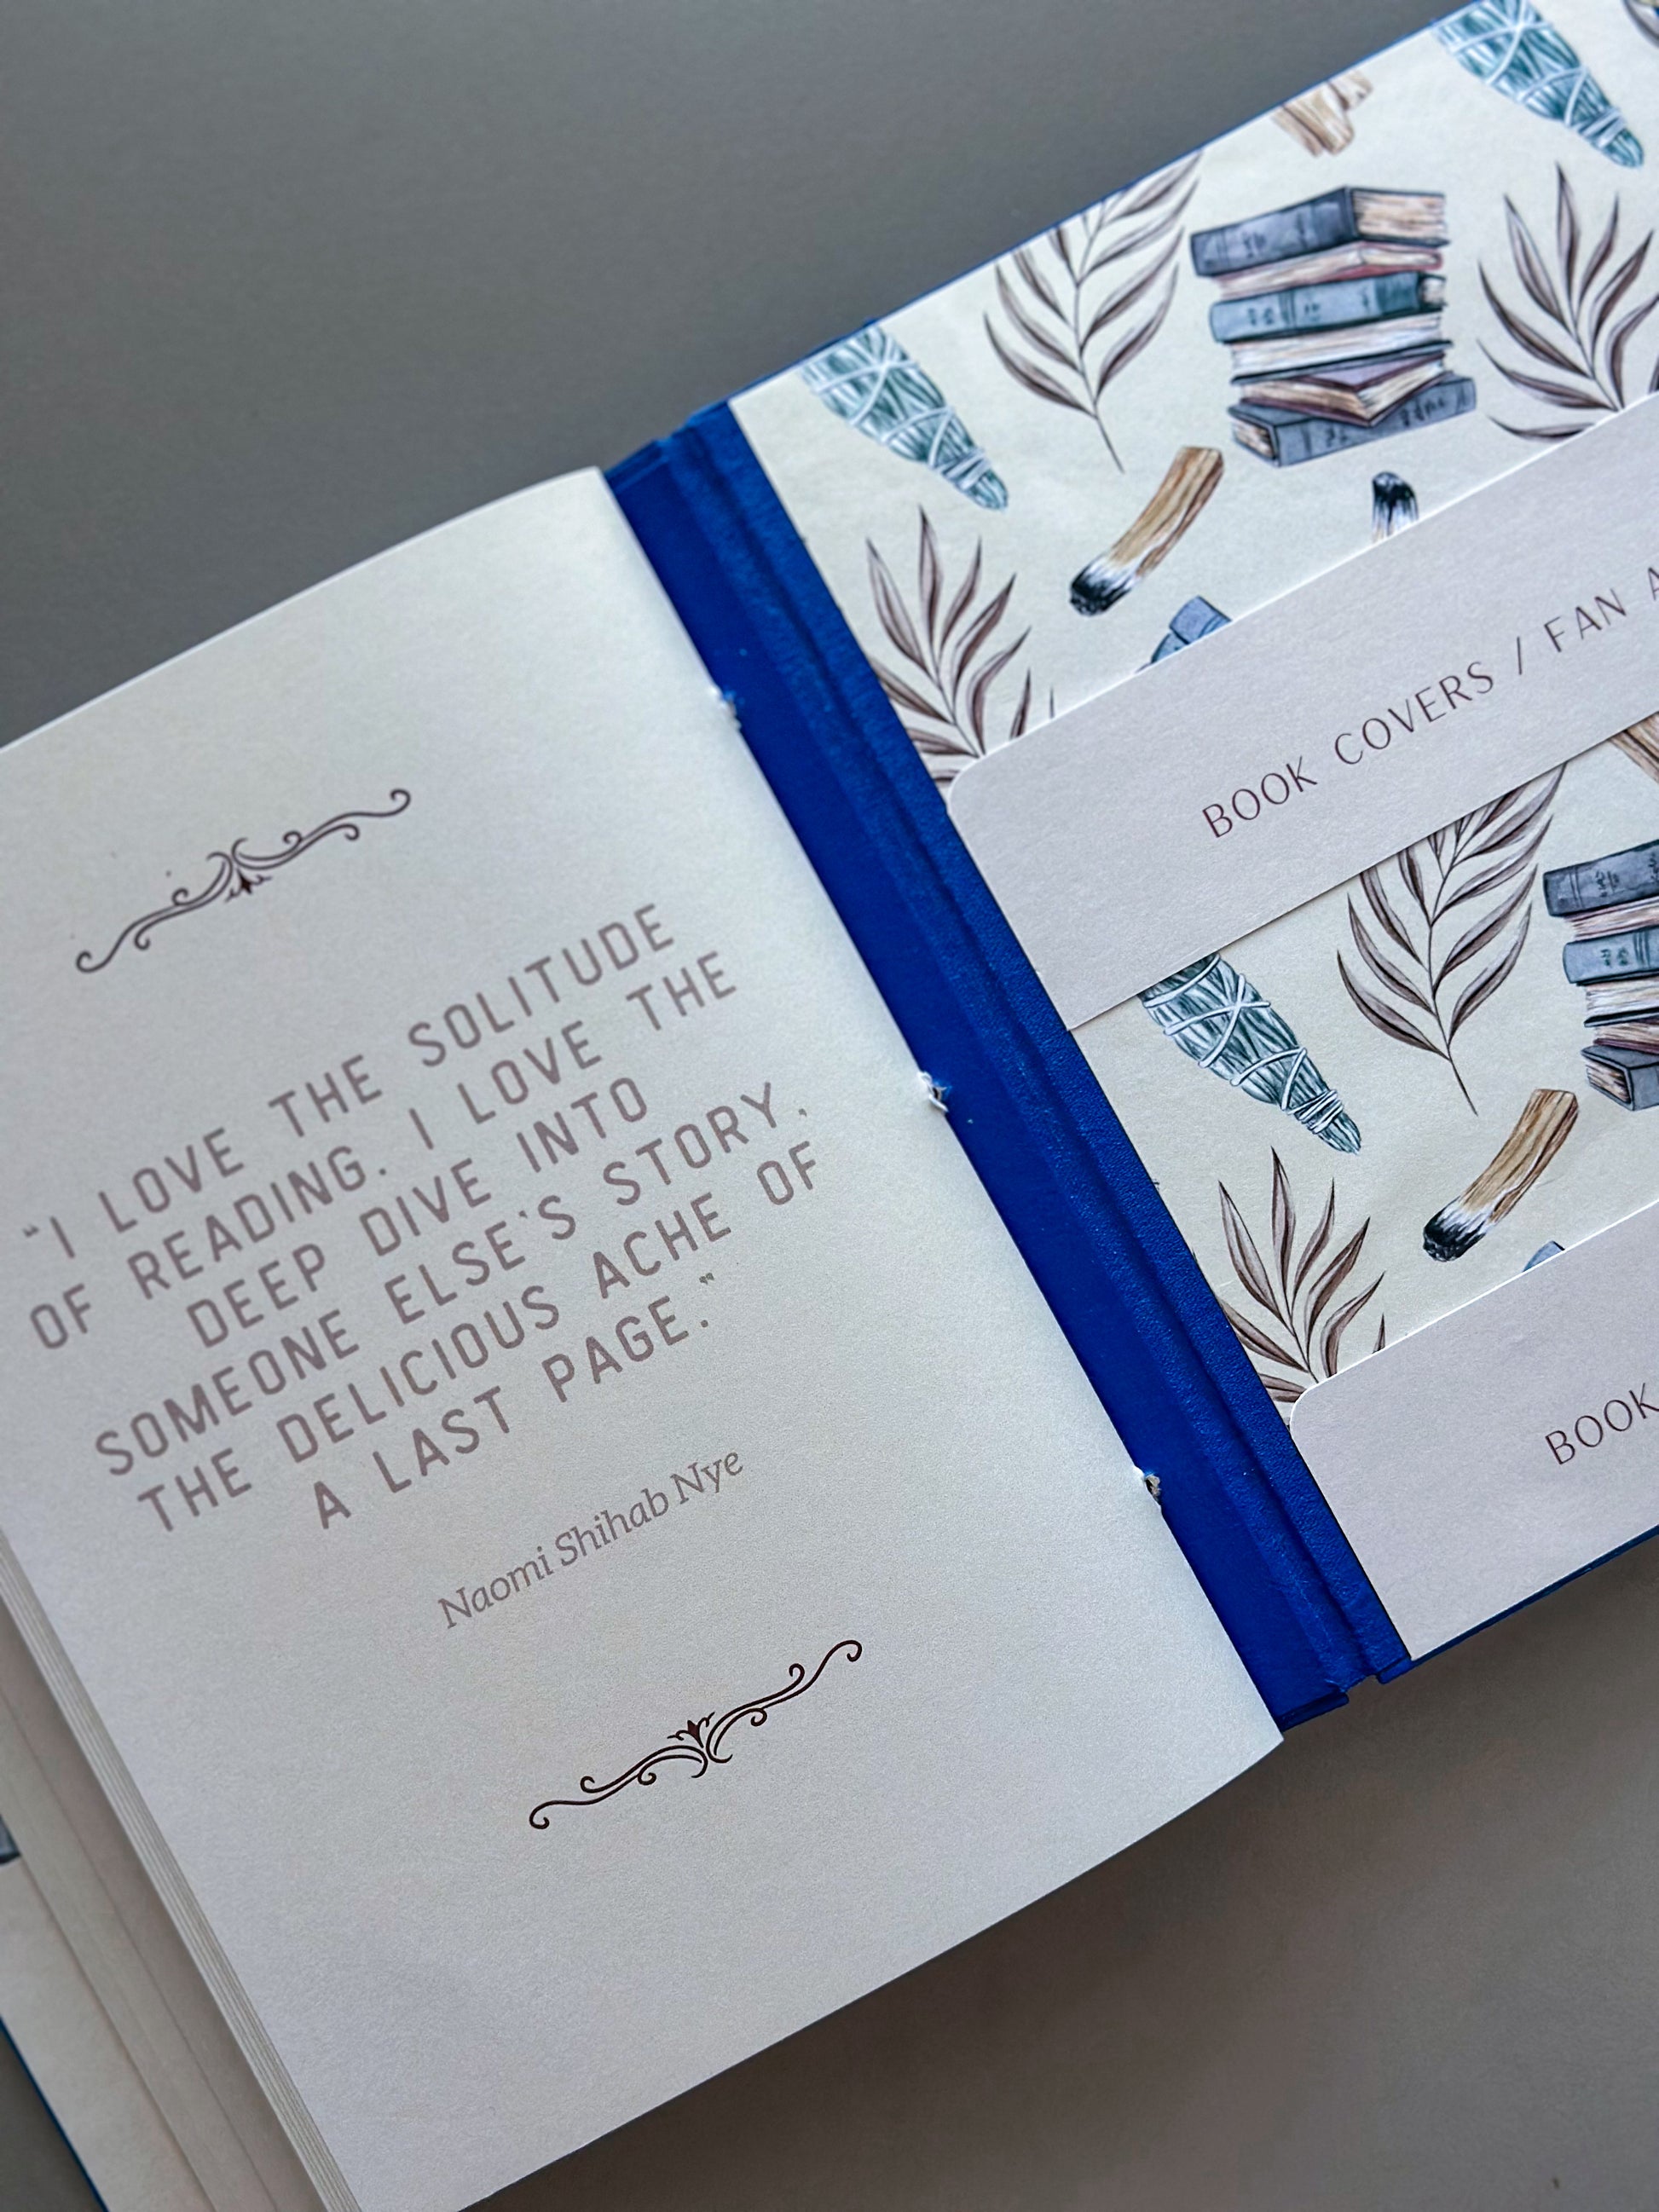 “I LOVE THE SOLITUDE
OF READING. I LOVE THE
DEEP DIVE INTO
SOMEONE ELSE'S STORY,
THE DELICIOUS ACHE OF
A LAST PAGE.”
Naomi Shihab Nye
BOOK COVERS / FAN A
BOOK